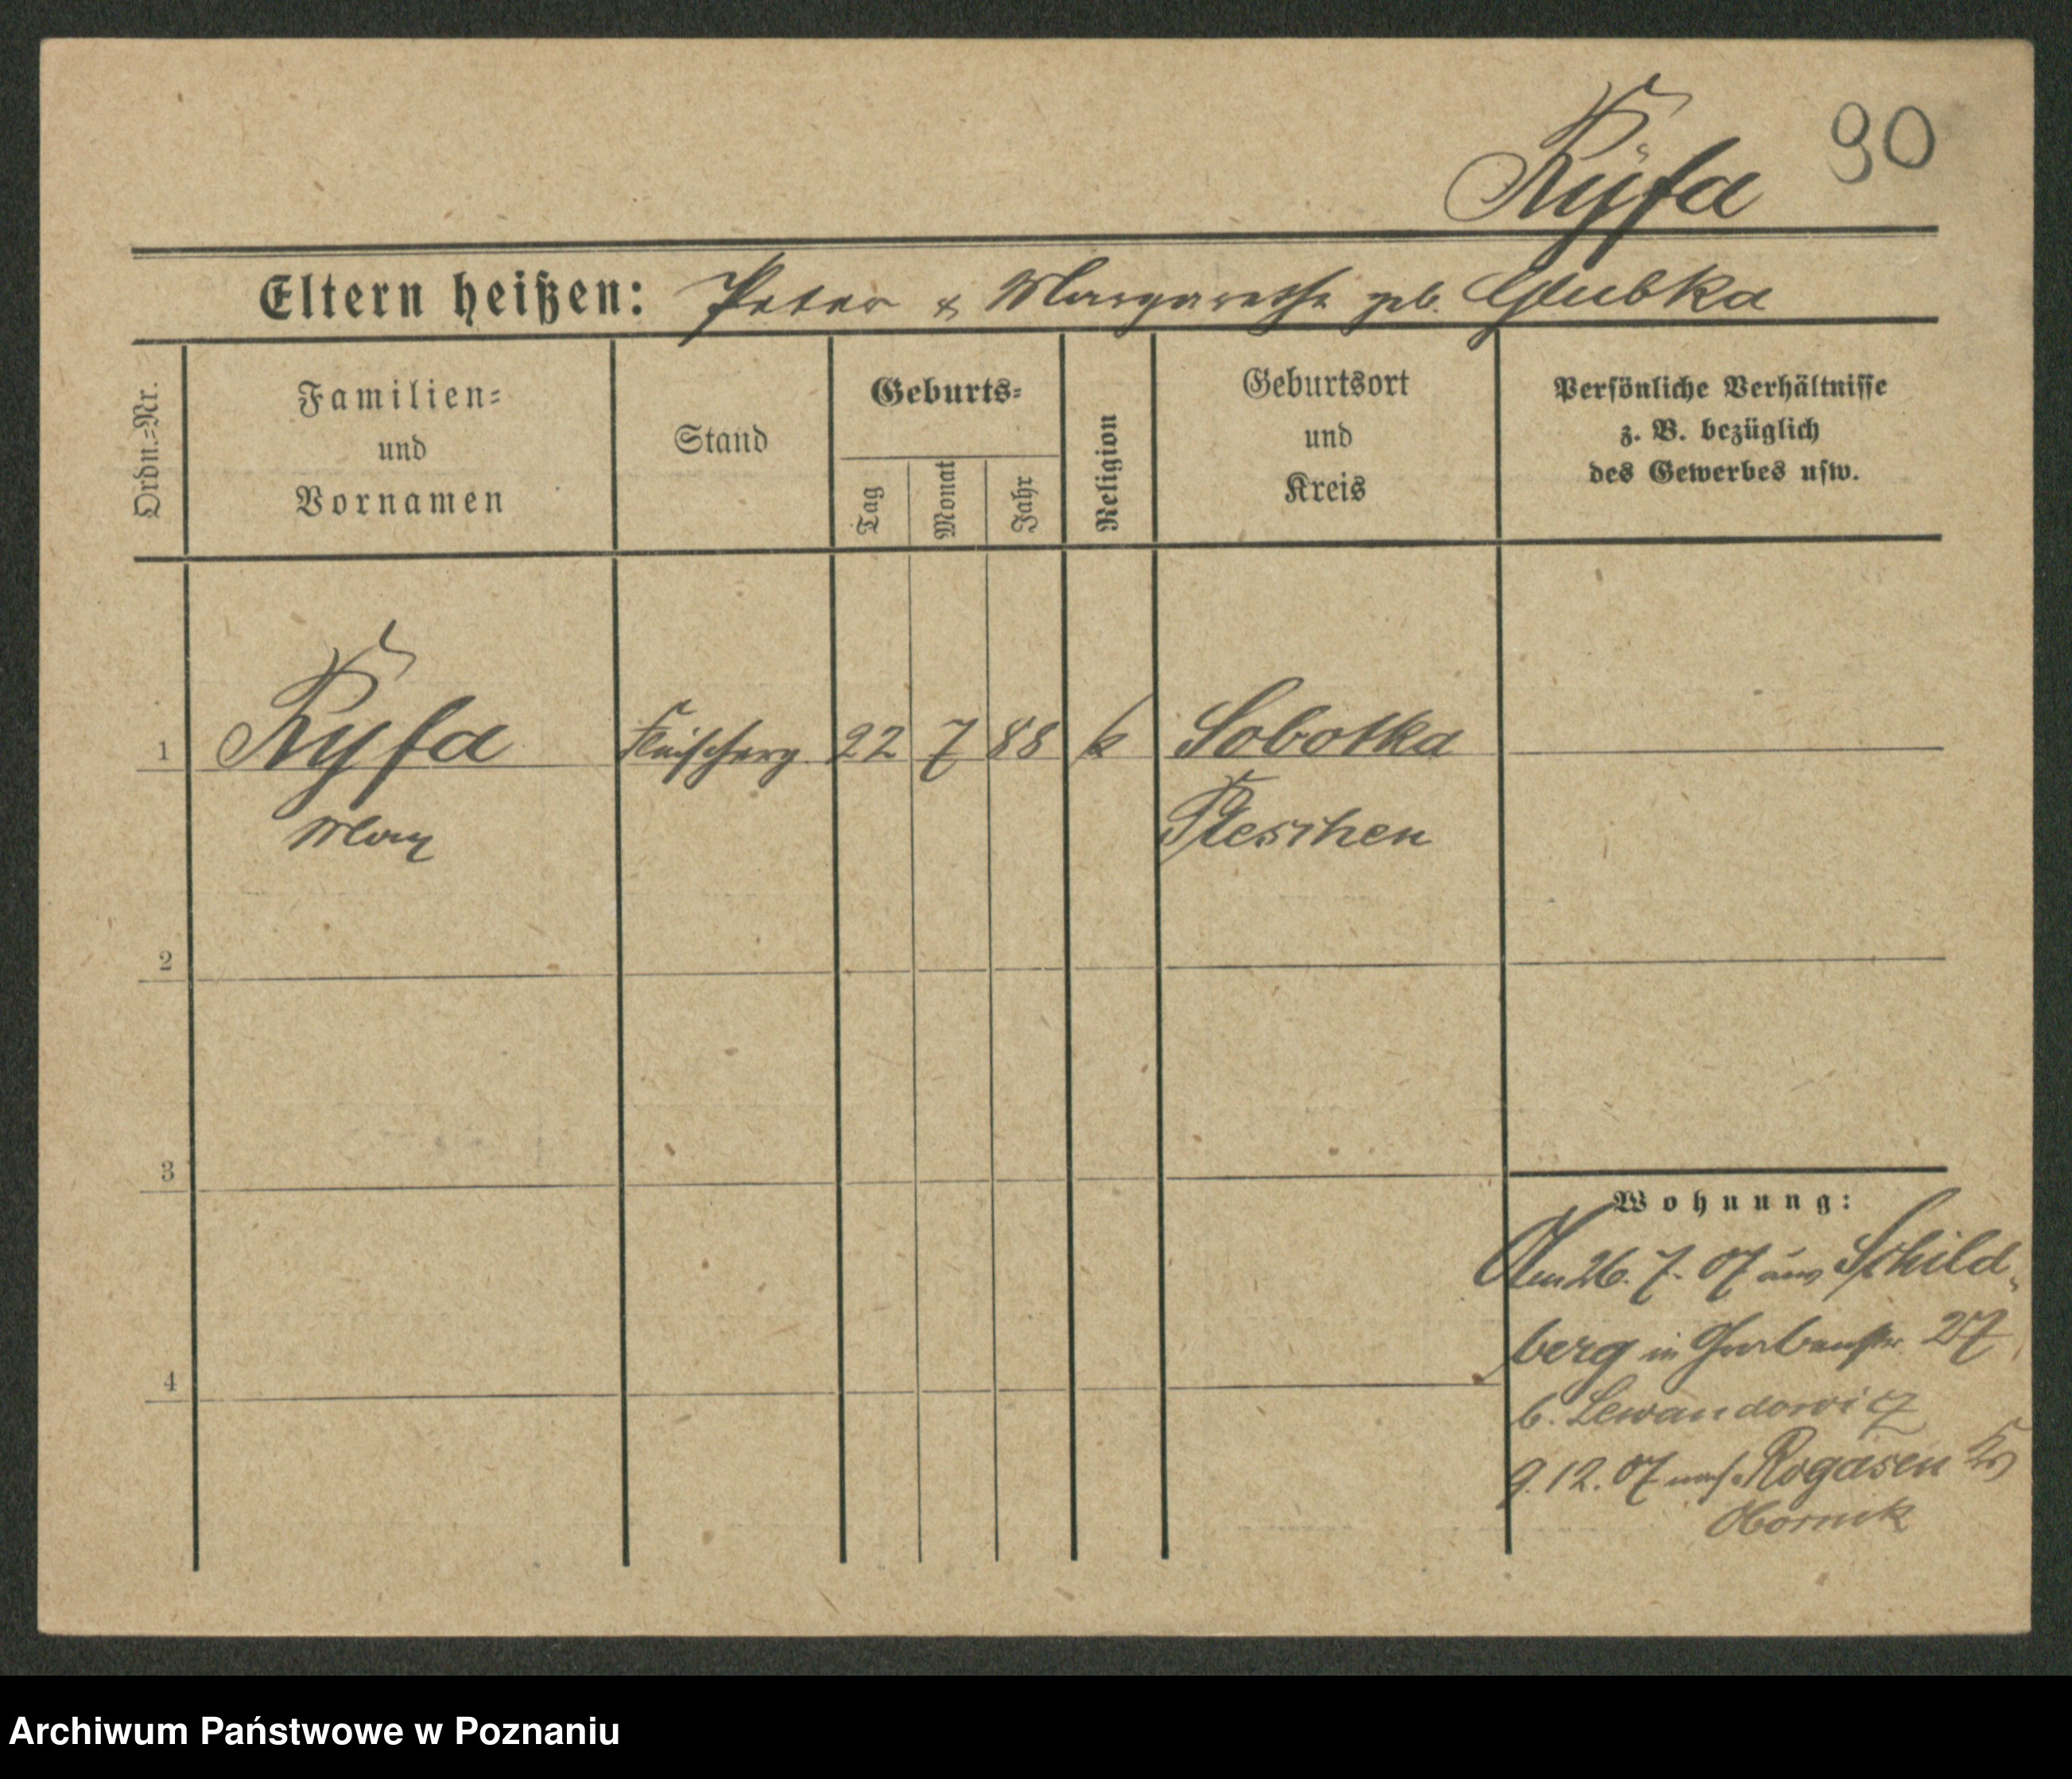 90
Kyfa
Eltern heißen: Peter & Margarethe geb. Glubka
Ordn.=Nr.
Familien=
und
Vornamen
Stand
Geburts=
Tag
Monat
Jahr
Religion
Geburtsort
und
Kreis
Persönliche Verhältnisse
z. B. bezüglich
des Gewerbes usw.
1 Kyfa Fleischerg. 22 7 88 k Sobotka
Max Pleschen
2
3
4
Wohnung:
Am 26. 7. 07 aus Schild-
berg in Gerberstr. 27
b. Lewandowicz
9.12.07 nach Rogasen Kr
Obornik
Archiwum Państwowe w Poznaniu